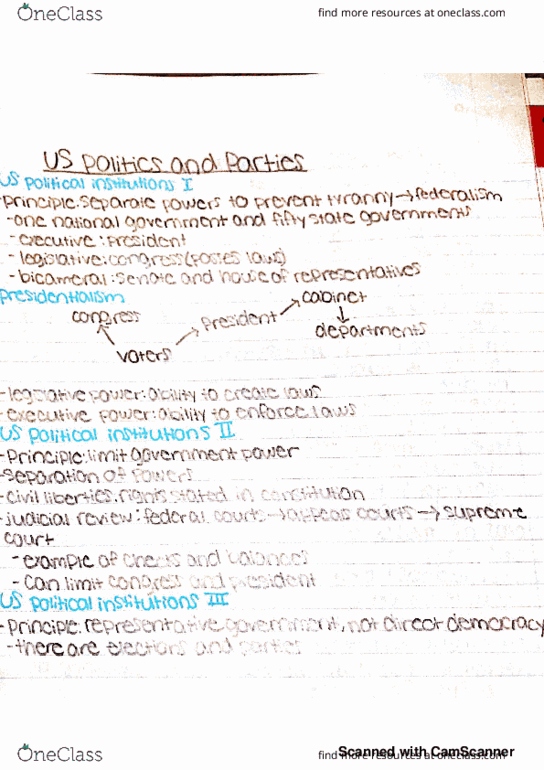 OneClass
find more resources at oneclass.com
US Politics and Parties
US political institutions I
-Principle: separate powers to prevent tyranny → federalism
-one national government and fifty state governments
-executive: president
-legislative: congress (passes laws)
-bicameral: senate and house of representatives
Presidentialism
cabinet
congress
President
departments
voters
-legislative power: ability to create laws
-executive power: ability to enforce laws
US political institutions II
-Principle: limit government power
-separation of powers
-civil liberties: rights stated in constitution
-judicial review: federal courts → appeals courts → supreme
court
-example of checks and balances
-can limit congress and president
US political institutions III
-Principle: representative government, not direct democracy
-there are elections and parties
Scanned with CamScanner
OneClass
find more resources at oneclass.com